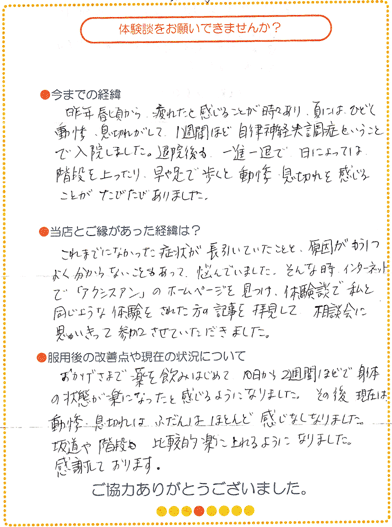 体験談をお願いできませんか？
●今までの経緯
昨年春頃から、疲れたと感じることが時々あり、夏にはひどく
動悸、息切れがして、1週間ほど自律神経失調症ということ
で入院しました。退院後も、一進一退で日によっては
階段を上ったり、早や足で歩くと動悸、息切れを感じる
ことがたびたびありました。
●当店とご縁があった経緯は？
これまでになかった症状が長引いていたことと、原因がもう1つ
よく分からないこともあって、悩んでいました。そんな時、インターネット
で「アクシスアン」のホームページを見つけ、体験談で私と
同じような体験をされた方の記事を拝見して相談会に
思いきって参加させていただきました。
●服用後の改善点や現在の状況について
おかげさまで薬を飲みはじめて10日から2週間ほどで身体
の状態が楽になったと感じるようになりました。その後現在は、
動悸、息切れはふだんはほとんど感じなくなりました。
坂道や階段も比較的楽に上れるようになりました。
感謝しております。
ご協力ありがとうございました。